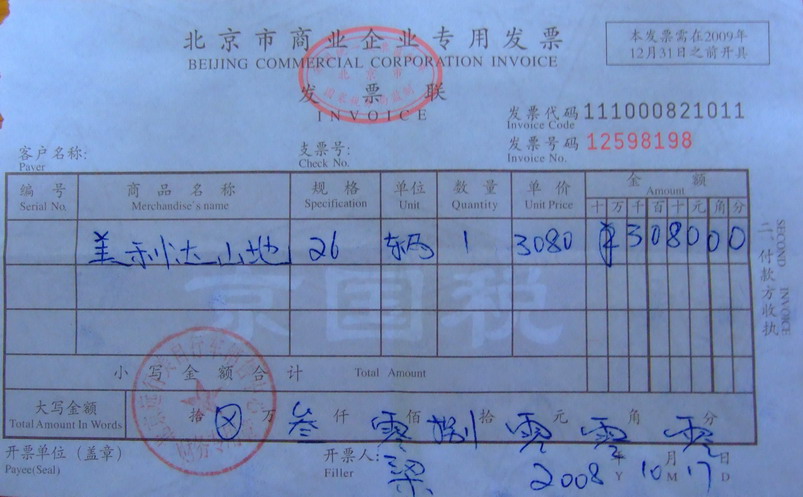 北京市商业企业专用发票
BEIJING COMMERCIAL CORPORATION INVOICE
本发票需在2009年
12月31日之前开具
发票联
INVOICE
北京市
发票代码 111000821011
Invoice Code
发票号码 12598198
Invoice No.
客户名称: 支票号:
Payer Check No.
编号 商品名称 规格 单位 数量 单价 金额
Serial No. Merchandise's name Specification Unit Quantity Unit Price Amount
十万千百十元角分
美利达山地 26 辆 1 3080 ¥308000
京国税
小写金额合计 Total Amount
大写金额 拾 ⊗ 万 叁 仟 零 佰 捌 拾 零 元 零 角 零 分
Total Amount In Words
开票单位（盖章） 开票人: 梁 2008 年 10 月 17 日
Payee(Seal) Filler Y M D
二 付款方收执
SECOND INVOICE